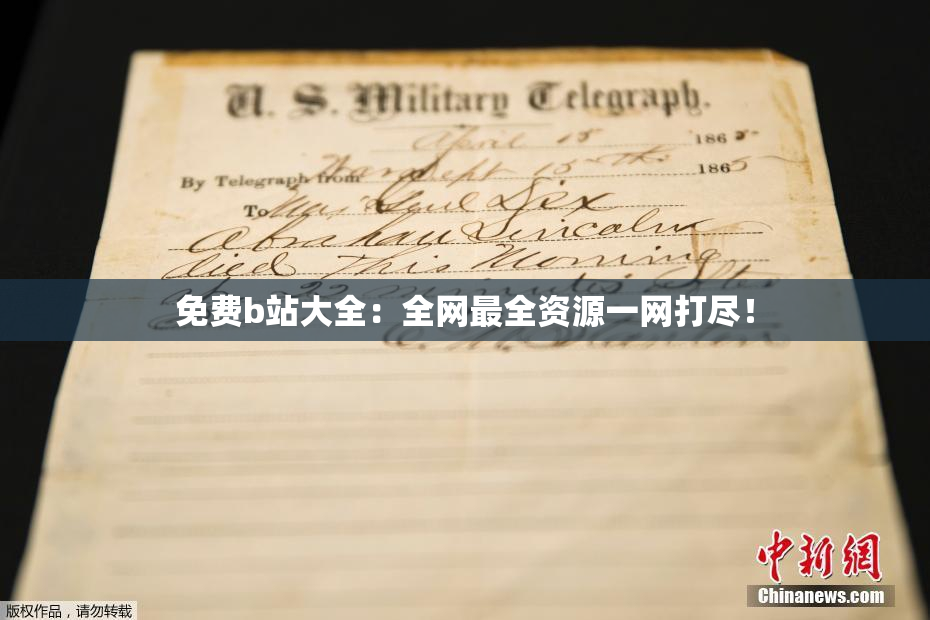 U. S. Military Telegraph.
April 15 1865
By Telegraph from War Dept 15th 1865
To Maj Genl Dix
Abraham Lincoln
died This Morning
22 minutes after
免费b站大全：全网最全资源一网打尽！
E. M. Stanton
中新網
Chinanews.com
版权作品，请勿转载